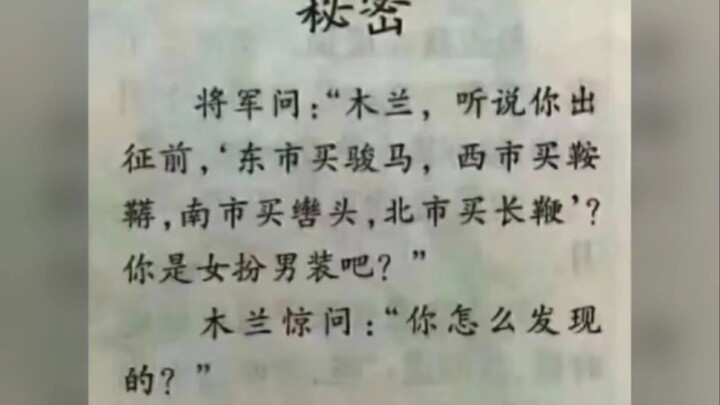 秘密
将军问：“木兰，听说你出
征前，‘东市买骏马，西市买鞍
鞯，南市买辔头，北市买长鞭’？
你是女扮男装吧？”
木兰惊问：“你怎么发现
的？”